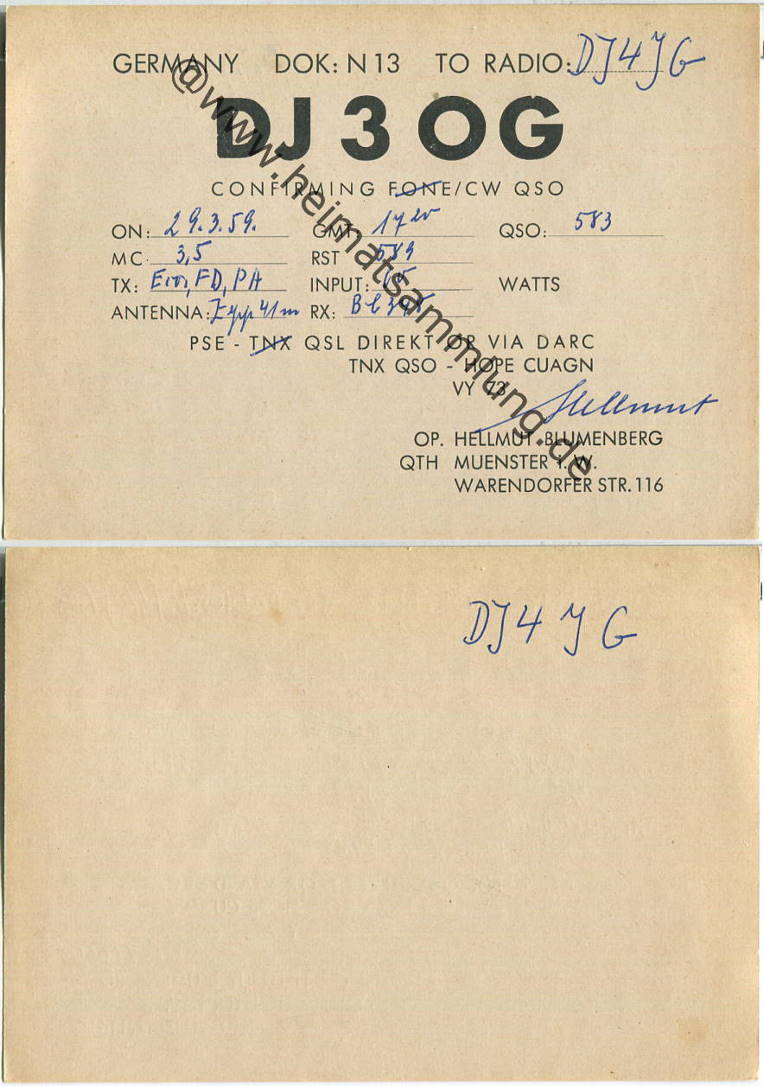 GERMANY DOK: N 13 TO RADIO: DJ4JG
DJ 3 OG
CONFIRMING FONE/CW QSO
ON: 29.3.59. GMT: 17 20 QSO: 583
MC 3,5 RST 589
TX: FD, PA INPUT: WATTS
ANTENNA: Zepp 41m RX:
PSE - TNX QSL DIREKT OR VIA DARC
TNX QSO - HOPE CUAGN
VY 73
Hellmut
OP. HELLMUT BLUMENBERG
QTH MUENSTER I. W.
WARENDORFER STR. 116
@www.heimatsammlung.de
DJ4JG